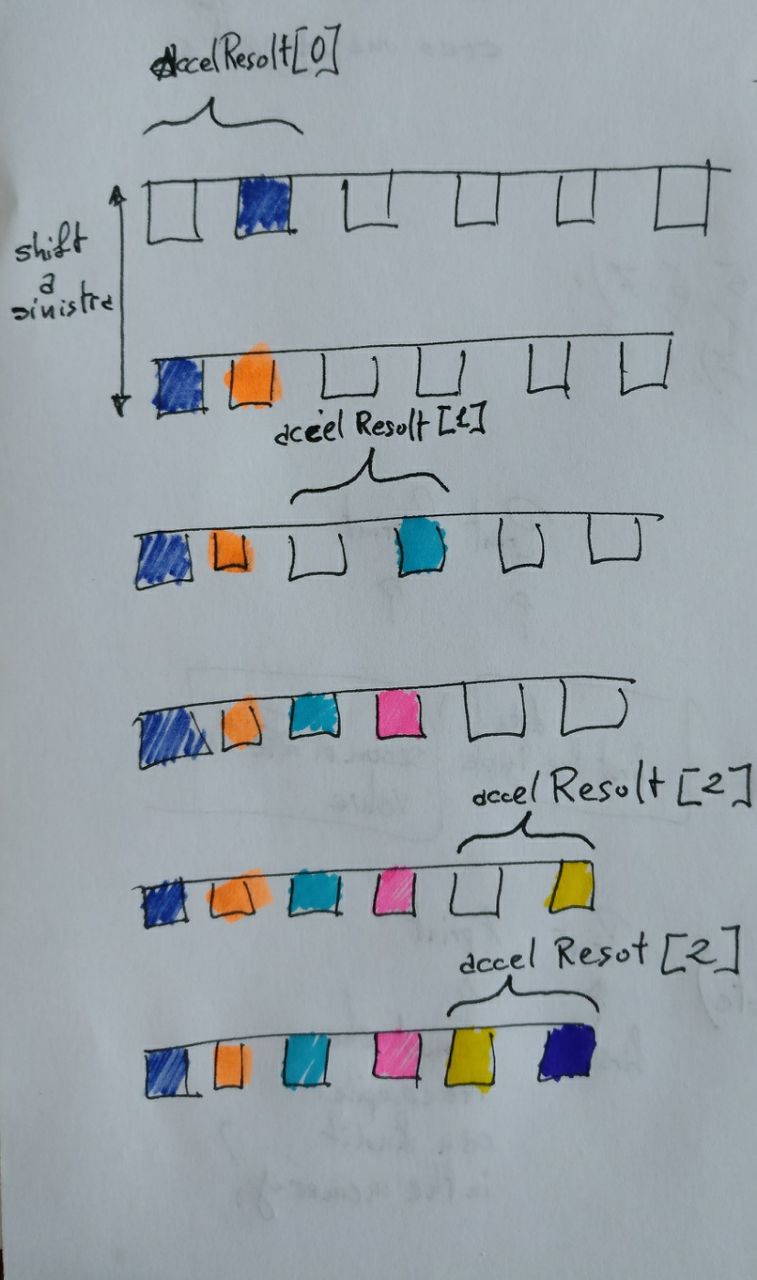 accelResolt[0]
shift
a
sinistra
accel Resolt [1]
accel Resolt [2]
accel Resot [2]